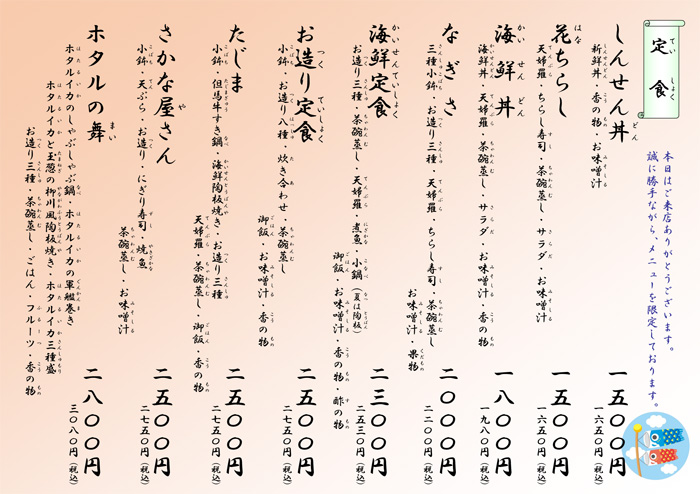 定食
てい しょく
本日はご来店ありがとうございます。
誠に勝手ながら、メニューを限定しております。
しんせん丼
どん
新鮮丼・香の物・お味噌汁
一五〇〇円
一六五〇円(税込)
花ちらし
はな
天婦羅・ちらし寿司・茶碗蒸し・サラダ・お味噌汁
一五〇〇円
一六五〇円(税込)
海鮮丼
かい せん どん
海鮮丼・天婦羅・茶碗蒸し・サラダ・お味噌汁
一八〇〇円
一九八〇円(税込)
なぎさ
三種小鉢・お造り三種・天婦羅・ちらし寿司・茶碗蒸し
お味噌汁・果物
二〇〇〇円
二二〇〇円(税込)
海鮮定食
かいせんていしょく
お造り三種・茶碗蒸し・天婦羅・煮魚・小鍋(夏は陶板)
御飯・お味噌汁・香の物・酢の物
二三〇〇円
二五三〇円(税込)
お造り定食
つく ていしょく
小鉢・お造り八種・炊き合わせ・茶碗蒸し
御飯・お味噌汁・香の物
二五〇〇円
二七五〇円(税込)
たじま
小鉢・但馬牛すき鍋・海鮮陶板焼き・お造り三種
天婦羅・茶碗蒸し・御飯・香の物
二五〇〇円
二七五〇円(税込)
さかな屋さん
や
小鉢・天ぷら・お造り・にぎり寿司・焼魚
茶碗蒸し・お味噌汁
二五〇〇円
二七五〇円(税込)
ホタルの舞
まい
ホタルイカのしゃぶしゃぶ鍋・ホタルイカの軍艦巻き
ホタルイカと玉葱の柳川風陶板焼き・ホタルイカ三種盛
お造り三種・茶碗蒸し・ごはん・フルーツ・香の物
二八〇〇円
三〇八〇円(税込)